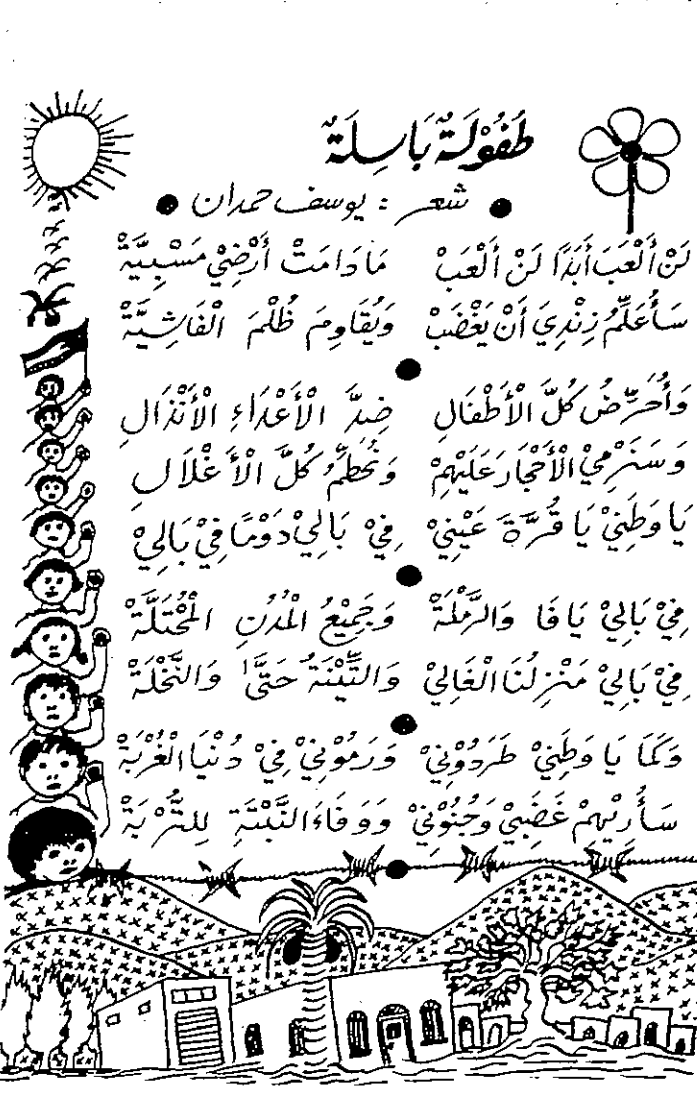 طُفُوْلَةٌ بَاسِلَةٌ
شعر : يوسف حمدان
لَنْ أَلْعَبَ أَبَدًا لَنْ أَلْعَبْ مَا دَامَتْ أَرْضِيْ مَسْبِيَّةْ
سَأُعَلِّمُ زِنْدِيَ أَنْ يَغْضَبْ وَيُقَاوِمَ ظُلْمَ الْفَاشِيَّةْ
وَأُحَرِّضُ كُلَّ الْأَطْفَالِ ضِدَّ الْأَعْدَاءِ الْأَنْذَالِ
وَسَنَرْمِيْ الْأَحْجَارَ عَلَيْهِمْ وَنُحَطِّمُ كُلَّ الْأَغْلَالِ
يَا وَطَنِيْ يَا قُرَّةَ عَيْنِيْ فِيْ بَالِيْ دَوْمًا فِيْ بَالِيْ
فِيْ بَالِيْ يَافَا وَالرَّمْلَةْ وَجَمِيْعُ الْمُدُنِ الْمُحْتَلَّةْ
فِيْ بَالِيْ مَنْزِلُنَا الْغَالِيْ وَالتِّيْنَةُ حَتَّى وَالنَّخْلَةْ
وَكَمَا يَا وَطَنِيْ طَرَدُوْنِيْ وَرَمُوْنِيْ فِيْ دُنْيَا الْغُرْبَةْ
سَأُرِيْهِمْ غَضَبِيْ وَجُنُوْنِيْ وَوَفَاءَ النَّبْتَةِ لِلتُّرْبَةْ